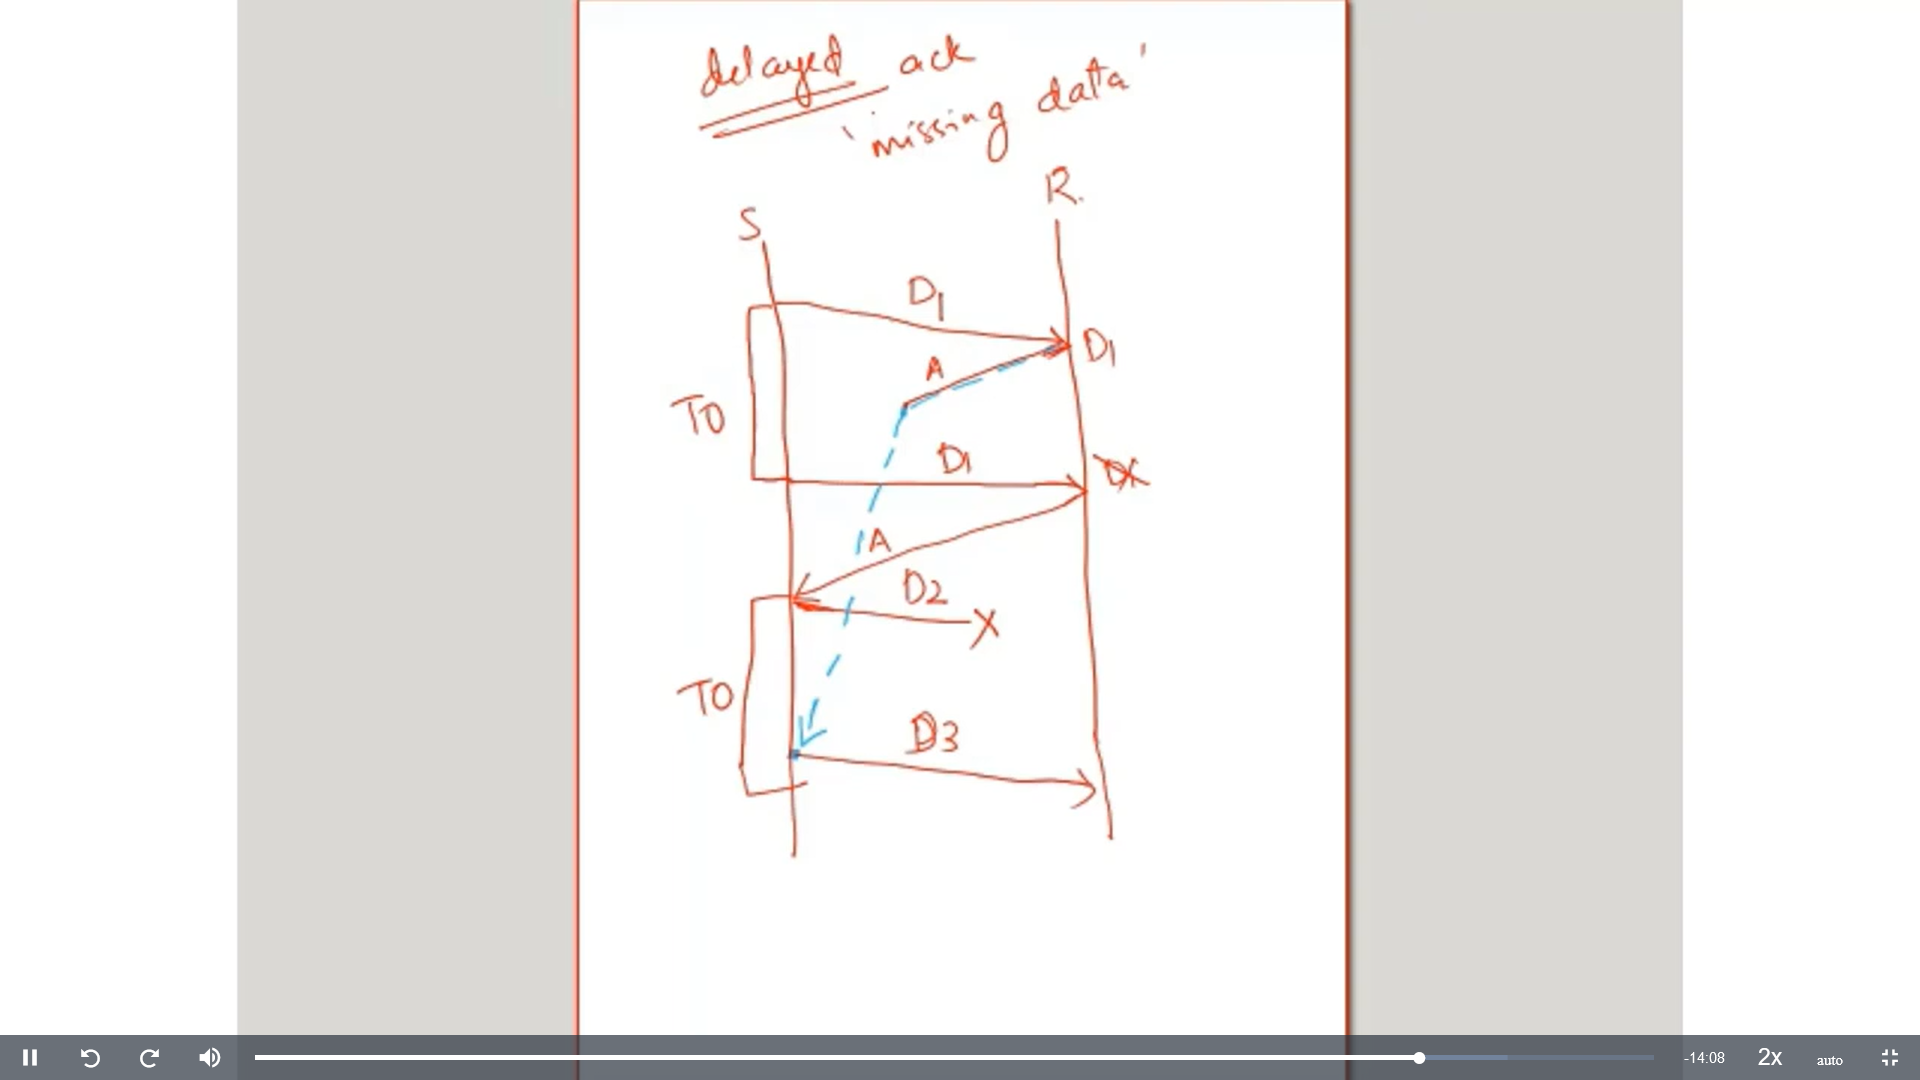 delayed ack
'missing data'
R.
S
D1
D1
A
TO
D1
A
D2
X
TO
D3
-14:08
2x
auto